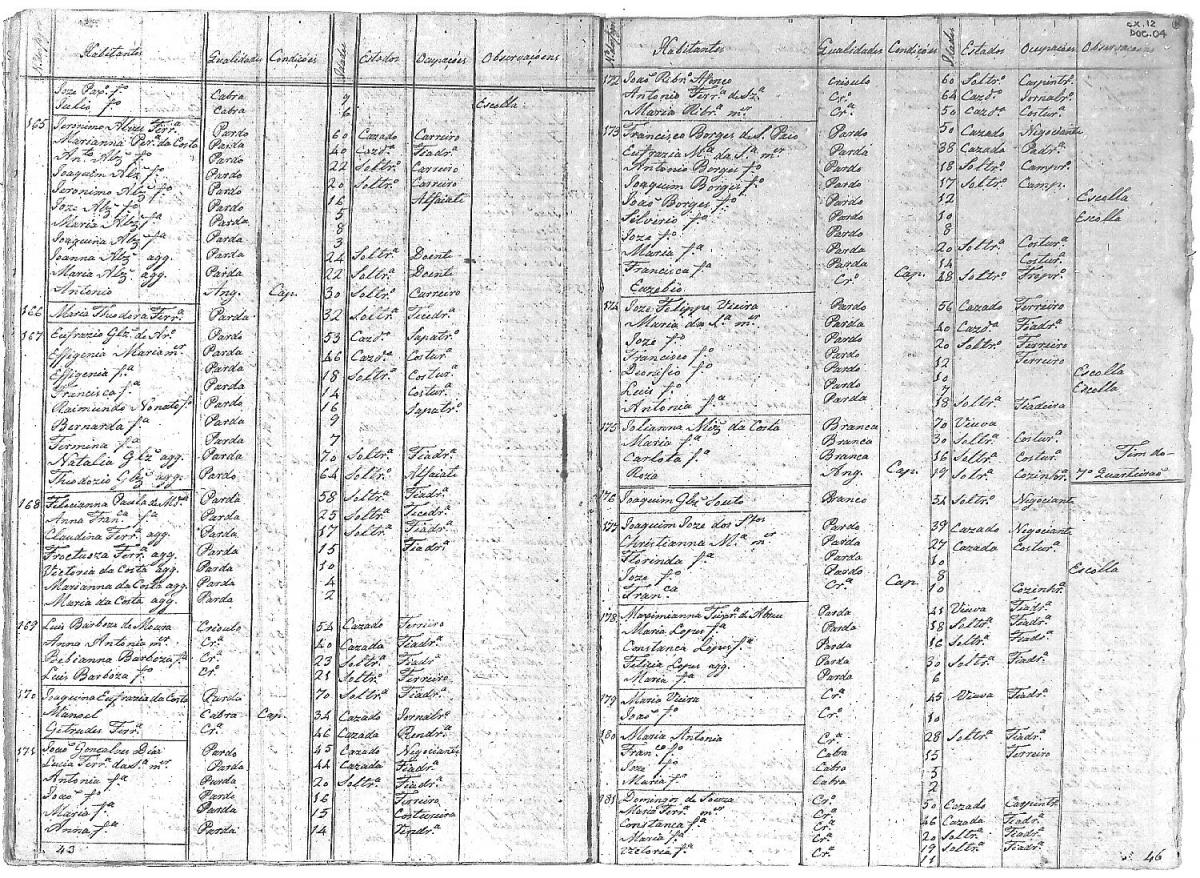 Habitantes Qualidades Condições Idades Estados Ocupações Observações
Joze Per.ª f.º Cabra 9 Escolla
Julio f.º Cabra 6
165 Jeronimo Alves Ferr.ª Pardo 60 Cazado Carreiro
Marianna Per.ª da Costa Parda 40 Cazd.ª Fiadr.ª
Ant.º Alz f.º Pardo 22 Soltr.º Carreiro
Joaquim Alz f.º Pardo 20 Soltr.º Carreiro
Jeronimo Alz f.º Pardo 16 Alfaiate
Joze Alz f.º Pardo 5
Maria Alz f.ª Parda 8
Joaquina Alz f.ª Parda 3
Joanna Alz agg. Parda 24 Soltr.ª Doente
Maria Alz agg. Parda 22 Soltr.ª Doente
Antonio Ang. Cap. 30 Soltr.º Carreiro
166 Maria Theodora Ferr.ª Parda 32 Soltr.ª Ticidr.ª
167 Eufrazio Glz de Ar.º Pardo 53 Cazd.º Sapatr.º
Effigenia Maria m.er Parda 46 Cazd.ª Costur.ª
Effigenia f.ª Parda 18 Soltr.ª Costur.ª
Francisca f.ª Parda 14 Costur.ª
Raimundo Nonato f.º Pardo 16 Sapatr.º
Bernarda f.ª Parda 9
Fermina f.ª Parda 7
Natalia Glz agg. Parda 70 Soltr.ª Fiadr.ª
Theodozio Glz agg. Pardo 64 Soltr.º Alfaiate
168 Felecianna Paula de Parda 58 Soltr.ª Fiadr.ª
Anna Fran.ca f.ª Parda 25 Soltr.ª Ticedr.ª
Claudina Ferr.ª agg. Parda 17 Soltr.ª Fiadr.ª
Froctuoza Ferr.ª agg. Parda 15 Fiadr.ª
Victoria da Costa agg. Parda 10
Marianna da Costa agg. Parda 4
Maria da Costa agg. Parda 2
169 Luis Barboza de Moura Crioulo 54 Cazado Ferreiro
Anna Antonia m.er Cr.ª 40 Cazada Fiadr.ª
Bebianna Barboza f.ª Cr.ª 23 Soltr.ª Fiadr.ª
Luis Barboza f.º Cr.º 21 Soltr.º Ferreiro
170 Joaquina Eufrazia da Costa Parda 70 Soltr.ª Fiadr.ª
Manoel Cabra Cap. 34 Cazado Jornalr.º
Getrudes Ferr.ª Cr.ª 46 Cazada Rendr.ª
171 João Gonçalves Dias Pardo 45 Cazado Negociante
Lucia Ferr.ª da S.ª m.er Parda 44 Cazada Fiadr.ª
Antonia f.ª Parda 20 Soltr.ª Fiadr.ª
João f.º Pardo 16 Ferreiro
Maria f.ª Parda 15 Costureira
Anna f.ª Parda 14 Fiadr.ª
43
CX.12
DOC.04
Habitantes Qualidades Condições Idades Estados Ocupações Observações
172 João Ribr.º Afonço Crioulo 60 Soltr.º Carpintr.º
Antonio Ferr.ª de Sz.ª Cr.º 64 Cazd.º Jornalr.º
Maria Ribr.ª m.er Cr.ª 50 Cazd.ª Costur.ª
173 Francisco Borges de S. Paio Pardo 50 Cazado Negociante
Eufrazia M.ª da S.ª m.er Parda 38 Cazada
Antonio Borges f.º Pardo 18 Soltr.º
Joaquim Borges f.º Pardo 17 Soltr.º Camp.
João Borges f.º Pardo 12 Escolla
Silverio f.º Pardo 10 Escolla
Joze f.º Pardo 8
Maria f.ª Parda 20 Soltr.ª Costur.ª
Francisca f.ª Parda 14 Costur.ª
Euzebio Cr.º Cap. 48 Soltr.º
174 Joze Felippe Vieira Pardo 56 Cazado Ferreiro
Maria da S.ª m.er Parda 40 Cazd.ª Fiadr.ª
Joze f.º Pardo 20 Soltr.º Ferreiro
Francisco f.º Pardo 12 Ferreiro
f.º Pardo 10 Escolla
Luis f.º Pardo 7 Escolla
Antonia f.ª Parda 18 Soltr.ª Fiadeira
175 Julianna da Costa Branca 70 Viuva
Maria f.ª Branca 30 Soltr.ª Costur.ª
Carlota f.ª Branca 16 Soltr.ª Costur.ª Fim do
Roza Ang. Cap. 19 Soltr.ª Cozinhr.ª 7º Quarteirão
176 Joaquim Glz Souto Branco 34 Soltr.º Negociante
177 Joaquim Joze dos S.tos Pardo 39 Cazado Negociante
Christianna M.ª m.er Parda 27 Cazada Costur.ª
Florinda f.ª Parda 10
Joze f.º Pardo 8 Escolla
Fran.ca Cr.ª Cap. 10 Cozinhr.ª
178 Maximianna de Abreu Parda 41 Viuva Fiadr.ª
Maria Lopes f.ª Parda 18 Soltr.ª Fiadr.ª
Constança Lopes f.ª Parda 16 Soltr.ª
Felizia Lopes agg. Parda 30 Soltr.ª Fiadr.ª
Maria f.ª Parda 6
179 Maria Vieira Cr.ª 45 Viuva Fiadr.ª
João f.º Cr.º 10
180 Maria Antonia Cr.ª 28 Soltr.ª Fiadr.ª
Fran.co f.º Cabra 15 Ferreiro
Joze f.º Cabra 3
Maria f.ª Cabra 2
181 Domingos de Souza Cr.º 50 Cazado Carpintr.º
Maria Ferr.ª m.er Cr.ª 46 Cazada Fiadr.ª
Constança f.ª Cr.ª 20 Soltr.ª Fiadr.ª
Maria f.ª Cr.ª 19 Soltr.ª Fiadr.ª
Victoria f.ª Cr.ª 11
46